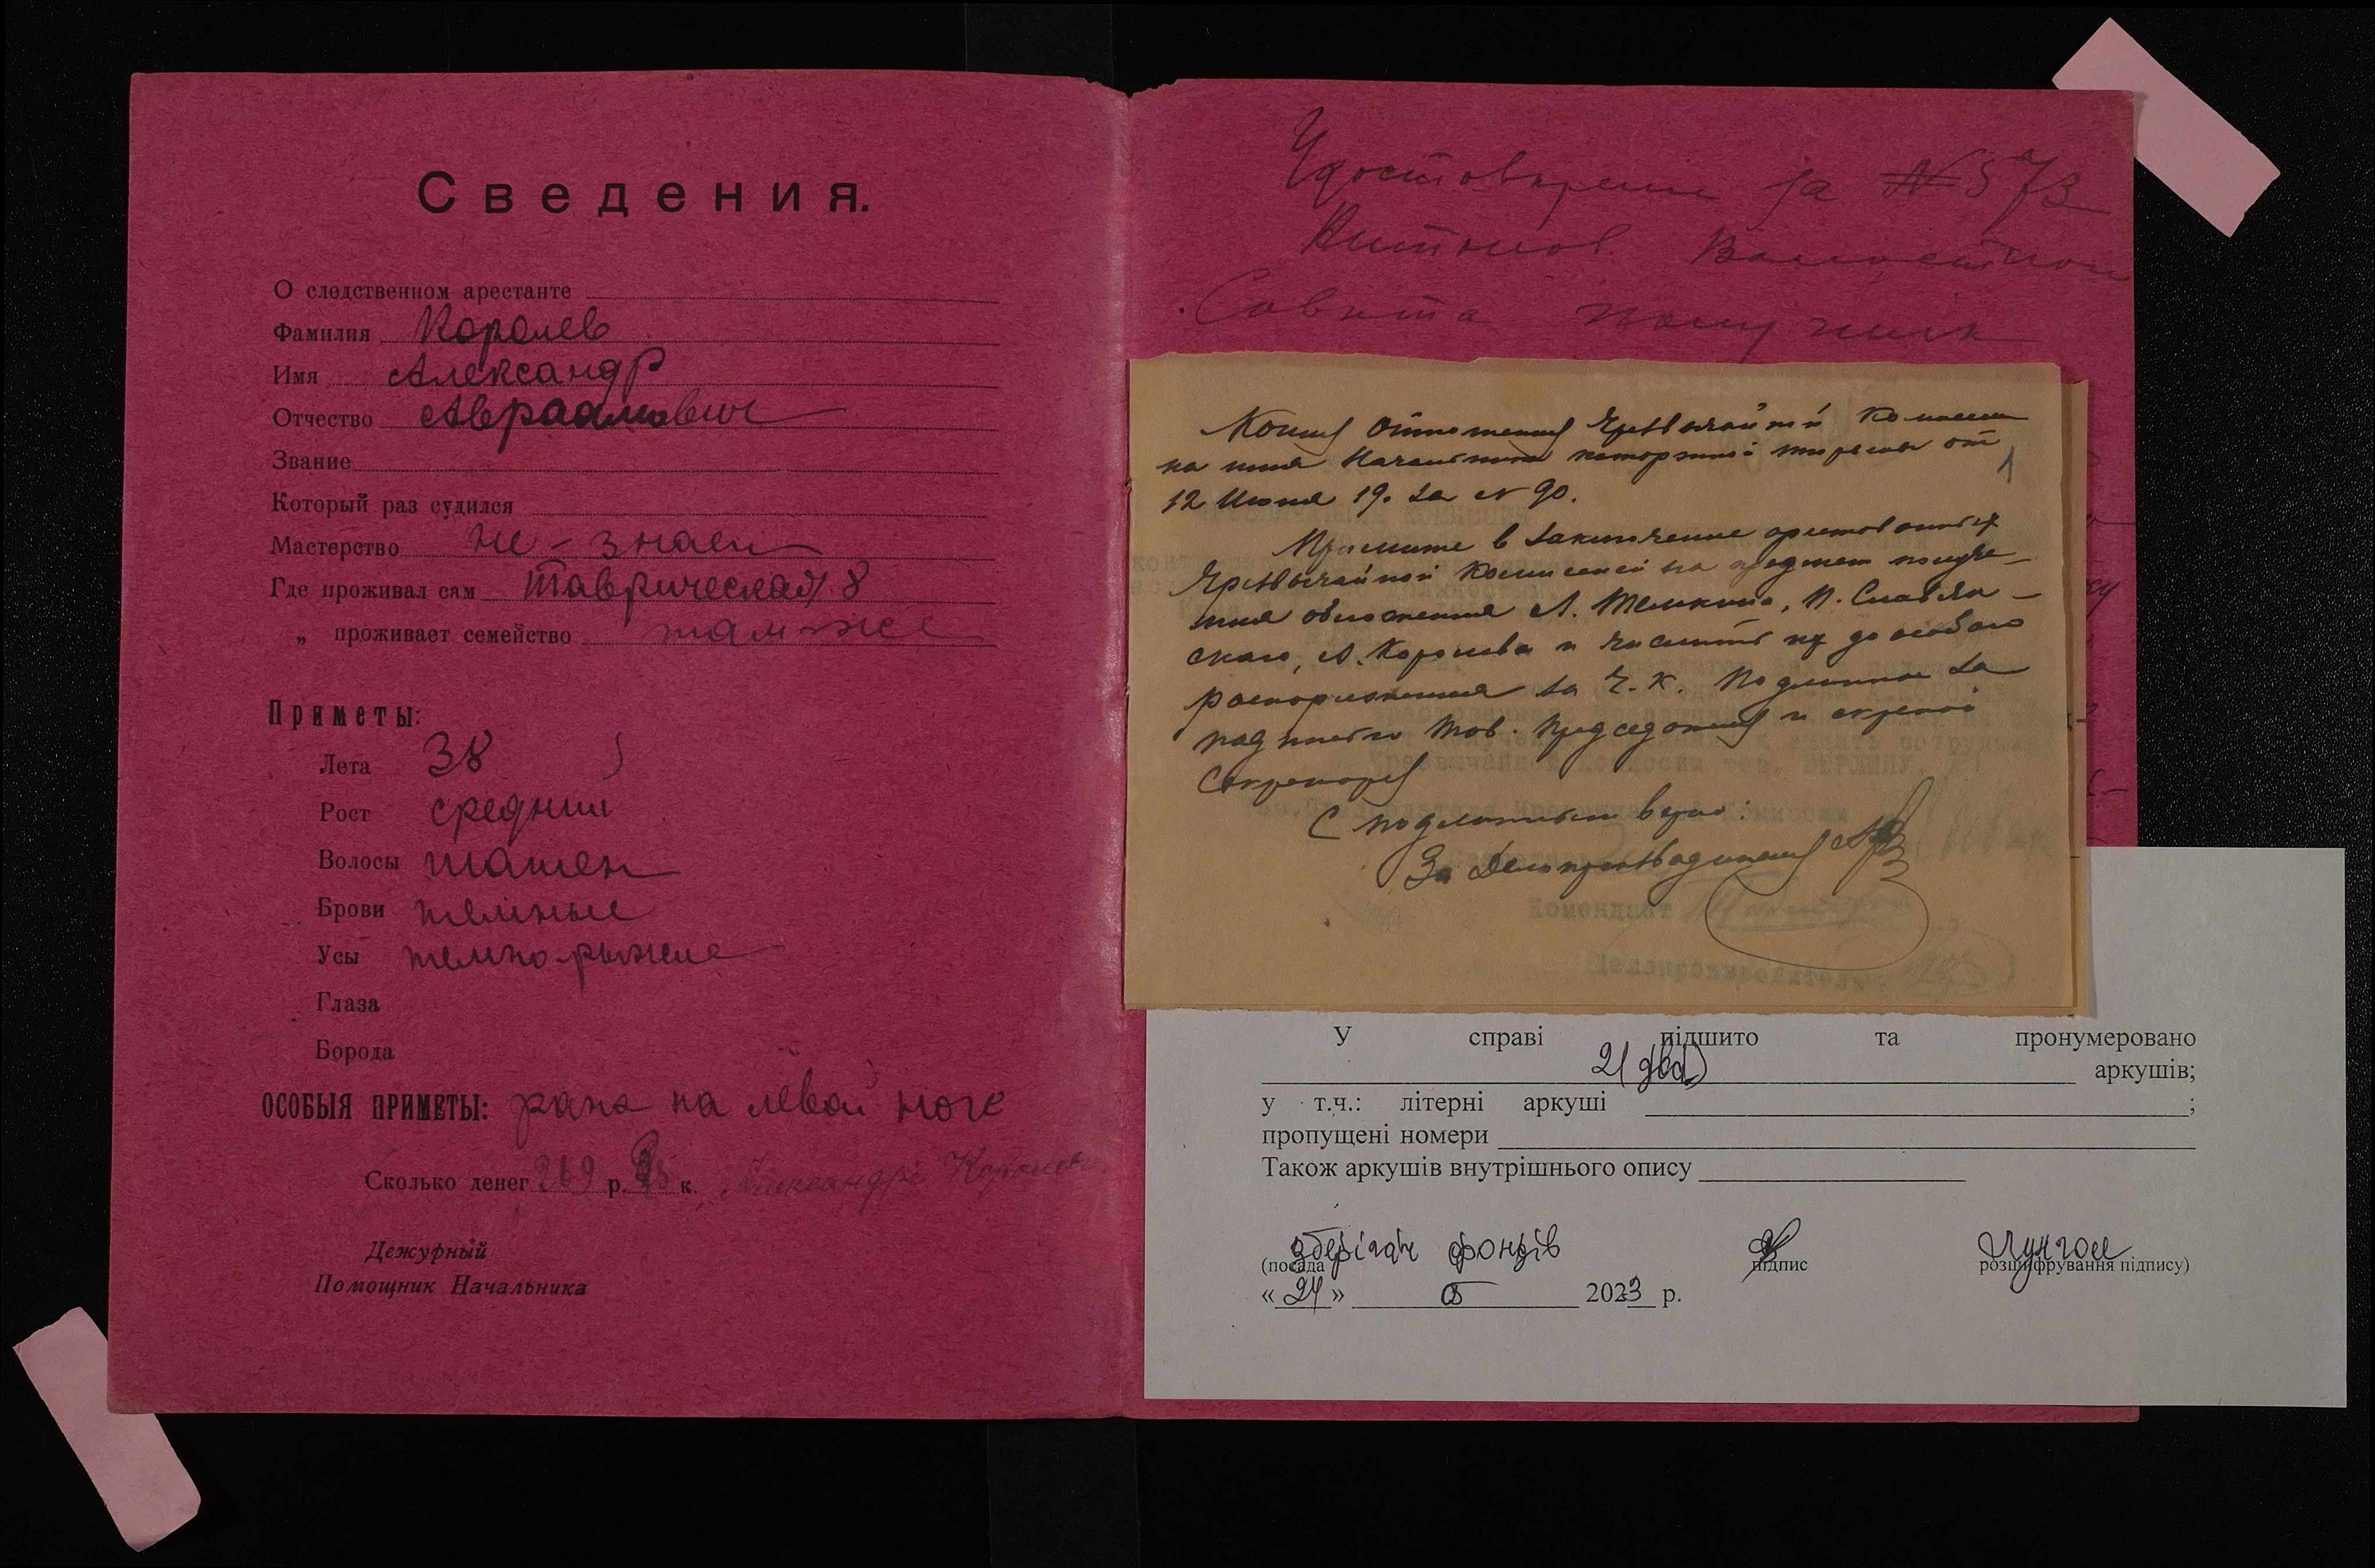 Сведения.
О следственном арестанте
Фамилия Королев
Имя Александр
Отчество Авраамович
Звание
Который раз судился
Мастерство не-знает
Где проживал сам Таврическая 8
„ проживает семейство там-же
Приметы:
Лета 38
Рост средний
Волосы шатен
Брови темные
Усы темно-рыжие
Глаза
Борода
ОСОБЫЯ ПРИМЕТЫ: рана на левой ноге
Сколько денег 269 р. к. Александръ Королевъ
Дежурный
Помощник Начальника
Удостоверение за № 573
Волостного
Совета получил
Копия отношения Чрезвычайной Комиссии
на имя Начальника каторжной тюрьмы от
12 Июня 19. за № 90.
1
Примите в заключение арестованных
Чрезвычайной Комиссией на предмет получе-
ния обложения Л. Темкина, И. Славян-
скаго, А. Королева и числить их до особаго
распоряжения за Ч.К. Подлинное за
надписью Тов. Председателя и скрепой
Секретаря
С подлинным верно:
За Делопроизводителя
Комендант
Делопроизводитель
У справі підшито та пронумеровано
2 (два) аркушів;
у т.ч.: літерні аркуші ;
пропущені номери
Також аркушів внутрішнього опису
зберігач фондів
(посада підпис розшифрування підпису)
« 24 » 05 2023 р.